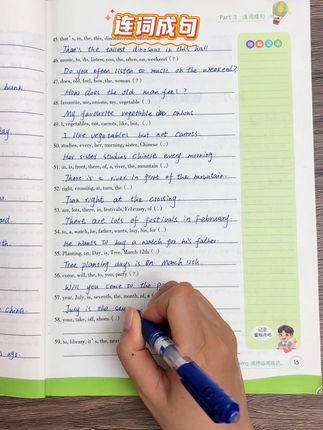 连词成句
Part 3 连词成句
45. that's, in, the, this, dinosaur,
That's the tallest dinosaur in this hall
46. music, to, do, listen, you, the, often, on, weekend (?)
Do you often listen to music on the weekend?
47. does, old, feel, how, the, woman (?)
How does the old man feel ?
48. favourite, are, onions, my, vegetable (.)
My favourite vegetable are onions
49. I, vegetables, not, carrots, like, but, (.)
I like vegetables but not carrots.
50. studies, every, her, morning, sister, Chinese (.)
Her sister studies Chinese every morning
51. is, in, there, front, of, a, river, the, mountain (.)
There is a river in front of the mountain.
52. right, crossing, at, turn, the (.)
Turn right at the crossing
53. are, lots, there, in, festivals, February, of (.)
There are lots of festivals in February
54. to, a, watch, he, father, wants, buy, his, for (.)
He wants to buy a watch for his father
55. Planting, on, Day, is, Tree, March 12th (.)
Tree planting days is on March 12th
56. come, will, the, to, you, party (?)
Will you come to the
57. year, July, is, seventh, the, month, of, a
July is the
58. your, take, off, shoes (.)
59. to, library, it's, the, next
China
age.
bank
记录
15